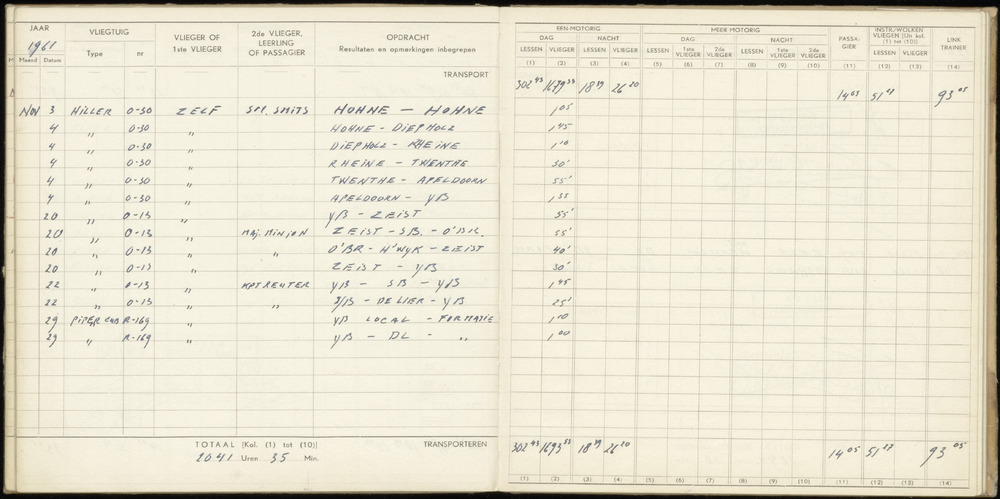 JAAR VLIEGTUIG VLIEGER OF 1ste VLIEGER 2de VLIEGER, LEERLING OF PASSAGIER OPDRACHT Resultaten en opmerkingen inbegrepen
1961
Maand Datum Type nr
TRANSPORT
NOV 3 HILLER O-30 ZELF SGT. SMITS HOHNE — HOHNE
4 " O-30 " HOHNE - DIEPHOLZ
4 " O-30 " DIEPHOLZ - RHEINE
4 " O-30 " RHEINE - TWENTHE
4 " O-30 " TWENTHE - APELDOORN
4 " O-30 " APELDOORN - YB
20 " O-13 " YB - ZEIST
20 " O-13 " MAJ. MINJON ZEIST - SB. - O'BR.
20 " O-13 " " O'BR - H'WYK - ZEIST
20 " O-13 " ZEIST - YB
22 " O-13 " KPT REUTER YB - SB - YB
22 " O-13 " " YB - DE LIER - YB
29 PIPER CUB R-169 " YB LOCAL - FORMATIE
29 " R-169 " YB - DL - "
TOTAAL [Kol. (1) tot (10)] TRANSPORTEREN
2041 Uren 35 Min.
EEN-MOTORIG MEER MOTORIG PASSA-GIER INSTR./WOLKEN VLIEGEN [Un kol. (1) tot (10)] LINK TRAINER
DAG NACHT DAG NACHT
LESSEN VLIEGER LESSEN VLIEGER LESSEN 1ste VLIEGER 2de VLIEGER LESSEN 1ste VLIEGER 2de VLIEGER LESSEN VLIEGER
(1) (2) (3) (4) (5) (6) (7) (8) (9) (10) (11) (12) (13) (14)
302 43 1679 18 26 20 14 51 93 05
1 05
1 45
1 10
30'
55'
1 35
55'
55'
40'
30'
1 45
25'
1 00
1 00
302 43 1693 53 18 26 20 14 05 51 93 05
(1) (2) (3) (4) (5) (6) (7) (8) (9) (10) (11) (12) (13) (14)